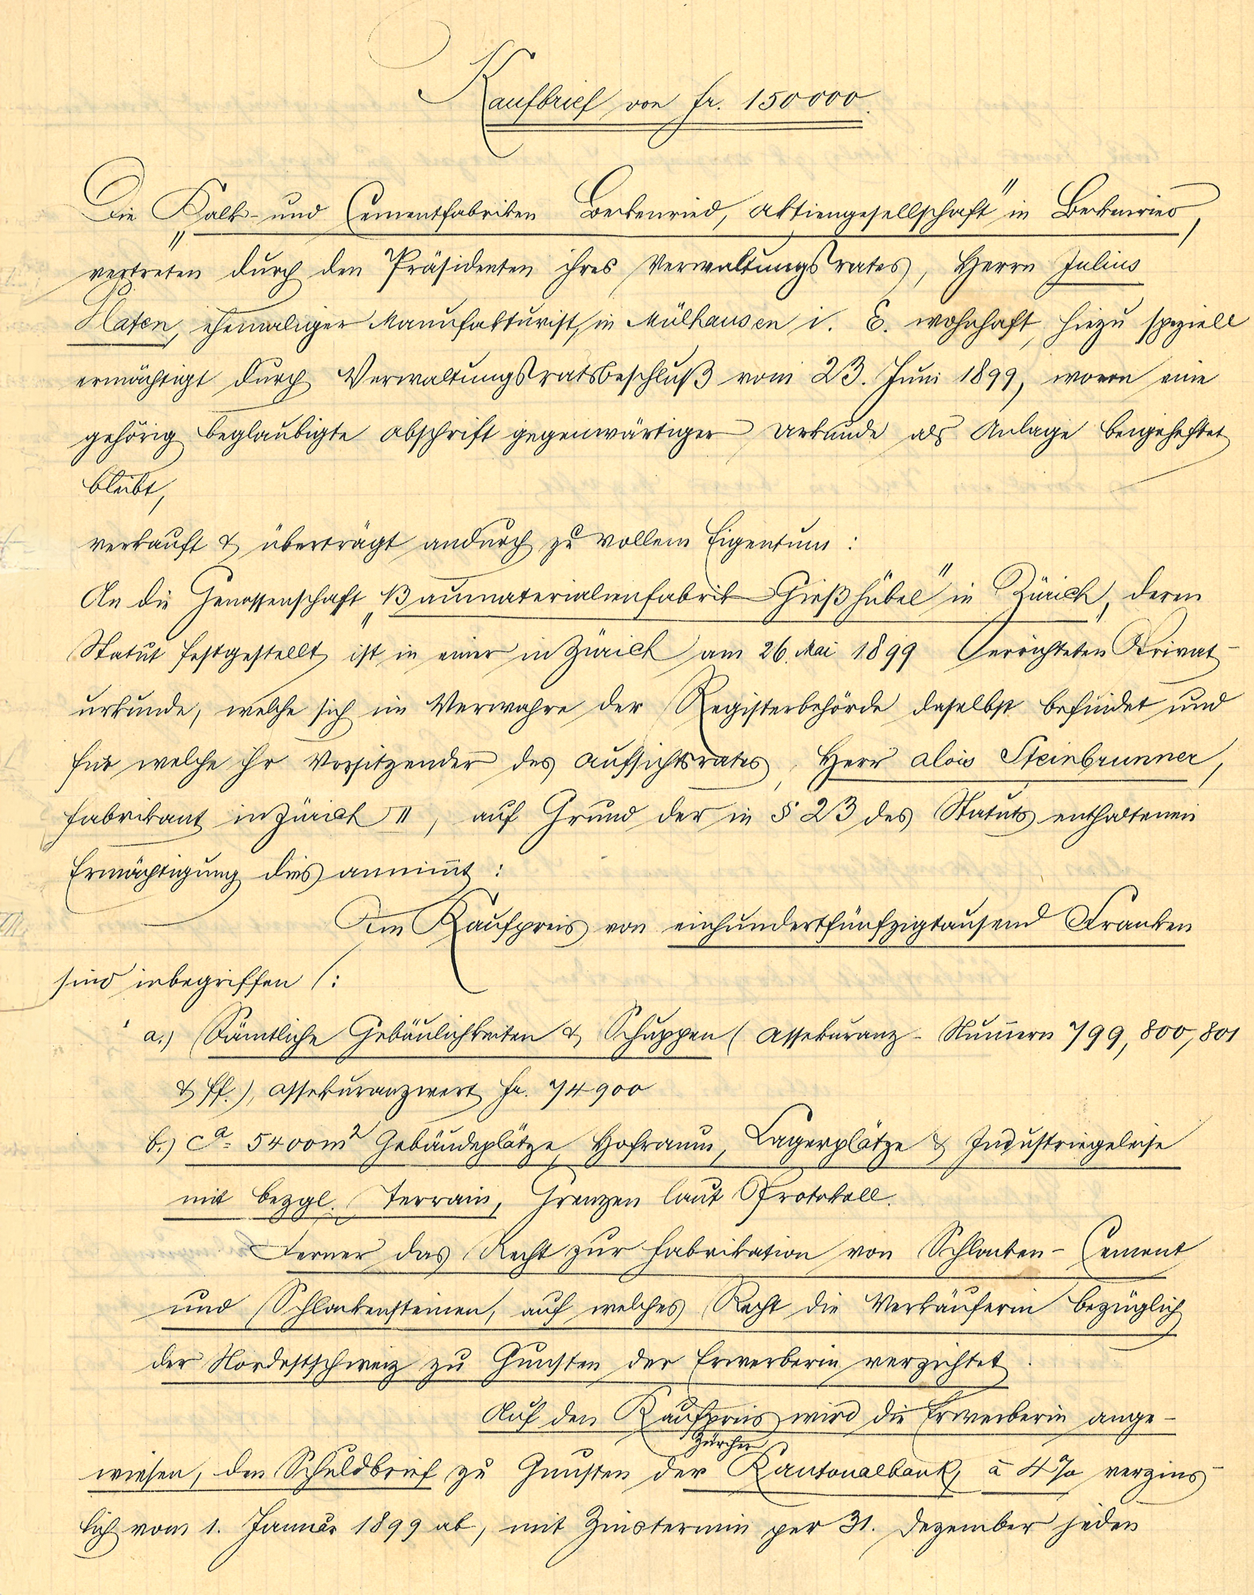 Kaufbrief von fr. 150000.
Die „Kalk- und Cementfabriken Beckenried, Aktiengesellschaft" in Beckenried,
vertreten durch den Präsidenten ihres Verwaltungsrates, Herrn Julius
Hafen, ehemaliger Manufakturist, in Mülhausen i. E. wohnhaft, hiezu speziell
ermächtigt durch Verwaltungsratsbeschluß vom 23. Juni 1899, wovon eine
gehörig beglaubigte Abschrift gegenwärtiger Urkunde als Anlage beigeheftet
bleibt,
verkauft & überträgt andurch zu vollem Eigentum:
An die Genossenschaft „Baumaterialienfabrik Gießhübel" in Zürich, deren
Statut festgestellt ist in einer in Zürich am 26. Mai 1899 errichteten Privat-
urkunde, welche sich im Verwahre der Registerbehörde daselbst befindet und
für welche ihr Vorsitzender des Aufsichtsrates, Herr Alois Steinbrunner,
Fabrikant in Zürich II, auf Grund der in § 23 des Statuts enthaltenen
Ermächtigung dies annim̄t:
Im Kaufpreis von einhundertfünfzigtausend Franken
sind inbegriffen (:
a.) Sämtliche Gebäulichkeiten & Schuppen (Assekuranz-Num̄ern 799, 800, 801
& ff.), Assekuranzwert fr. 74900
b.) ca. 5400m² Gebäudeplätze, Hofraum, Lagerplätze & Industriegeleise
mit bezgl. Terrain, Grenzen laut Protokoll.
Ferner das Recht zur Fabrikation von Schlacken-Cement
und Schlackensteinen, auf welches Recht die Verkäuferin bezüglich
der Nordostschweiz zu Gunsten der Erwerberin verzichtet.
Auf den Kaufpreis wird die Erwerberin ange-
wiesen, den Schuldbrief zu Gunsten der Zürcher Kantonalbank, à 4% verzins-
lich vom 1. Januar 1899 ab, mit Zinstermin per 31. Dezember jeden